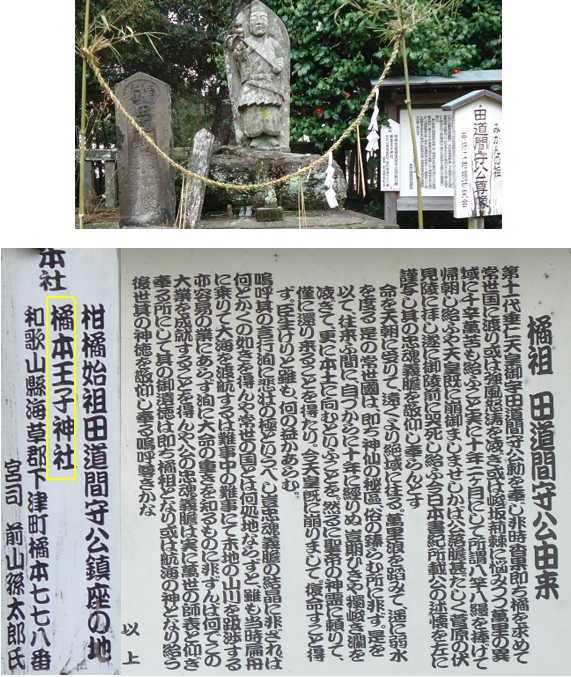 みかんの祖
田道間守公尊像
橘祖 田道間守公由来
第十代垂仁天皇御宇田道間守公勅を奉じ非時香菓即ち橘を求めて
常世国に渡り或は強風怒濤を凌ぎ或は峻坂荊棘に悩みつつ萬里の異
域に千辛萬苦も給ふこと実に十年二ヶ月にして所謂八竿八縵を捧げて
帰朝し給ふや天皇既に崩御ましませしかば公落膽甚だしく菅原の伏
見陵に拝し遂に御陵前に哭死し給ふ今日本書紀所載公の述懐を左に
謹写し其の忠魂義膽を敬仰し奉らんとす
命を天朝に受りて、遠くより絶域に往る。萬里浪を踏みて、遥に弱水
を度る。是の常世國は、即ち神仙の秘區、俗の臻らむ所に非ず。是を
以て、往来ふ間に、自づからに十年に經りぬ。豈期ひきや、獨峻き瀾を
凌ぎて、更に本土に向むといふことを。然るに聖帝の神靈に頼りて、
僅に還り来ることを得たり。今天皇既に崩りまして、復命すこと得
ず。臣生けりと雖も、何の益かあらむ。
嗚呼其の言行洵に悲壮の極といふべし忠魂義膽の結晶に非ざれば
何とかくの如きを得んや常世の国とは何処地ならずと雖も当時扁舟
に乗りて大海を渡航するは難事中の難事にて未地の山川を跋渉する
亦容易の業にあらず洵に大命の重きを知るものに非ずんば何でこの
大業を成就することを得んや公の忠魂義膽は実に萬世の師表と仰ぎ
奉る所にして其の御遺徳は即ち橘祖となり或は航海の神となり給う
後世其の神徳を敬仰し奉る嗚呼尊きかな
以上
柑橘始祖田道間守公鎮座の地
橘本王子神社
和歌山縣海草郡下津町橘本七七八番
宮司 前山孫太郎氏
本社